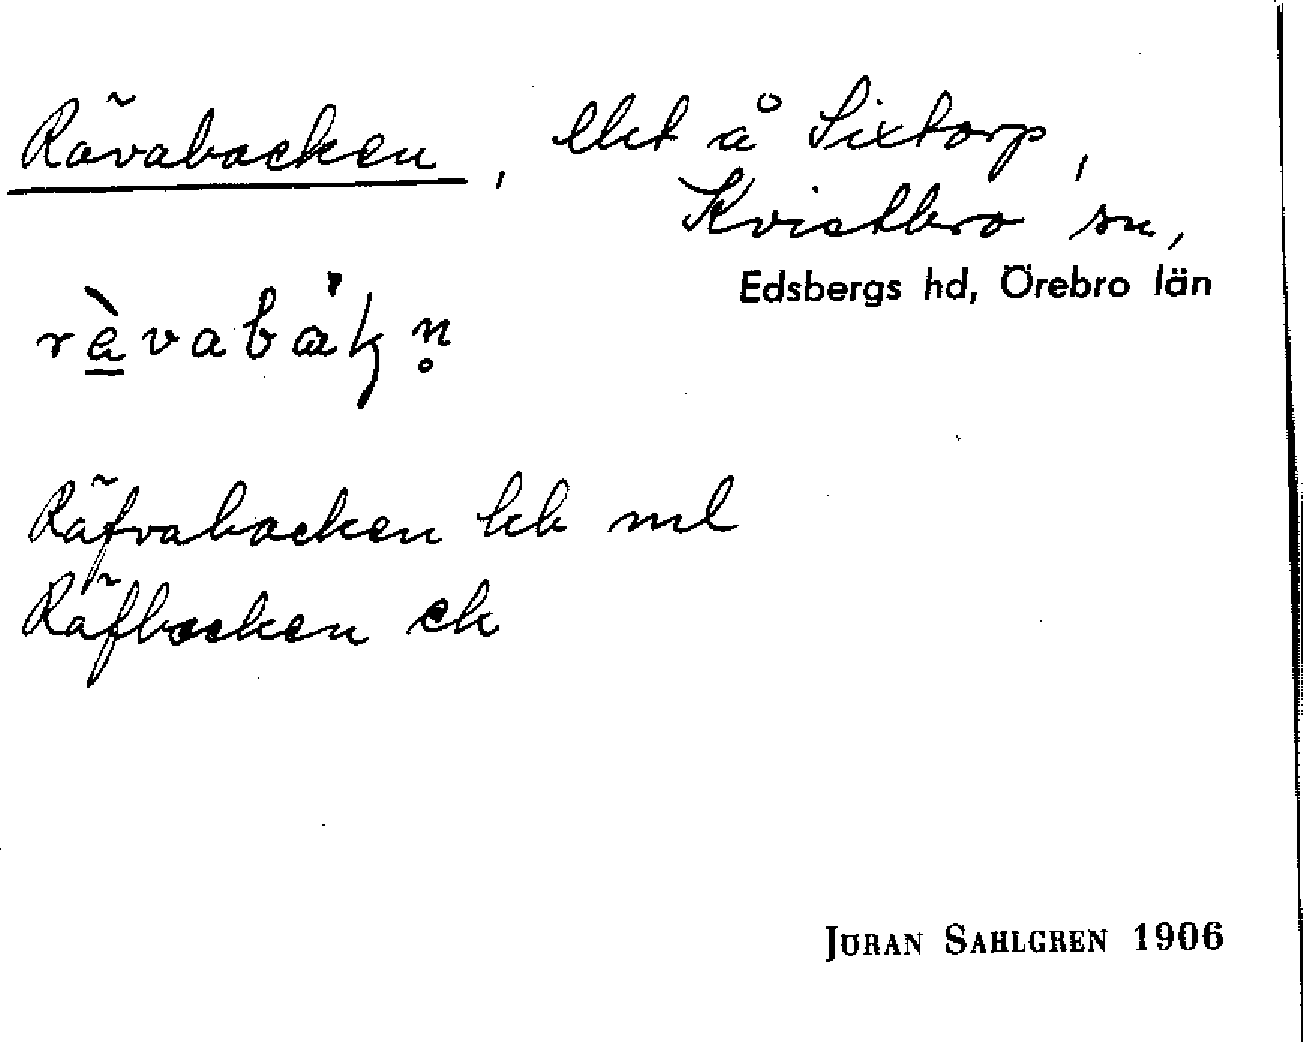 Rävabacken, lht å Sixtorp,
Kvistbro sn,
Edsbergs hd, Örebro län
ràvabák n̥
Räfvabacken hb ml
Räfbacken ek
JÖRAN SAHLGREN 1906